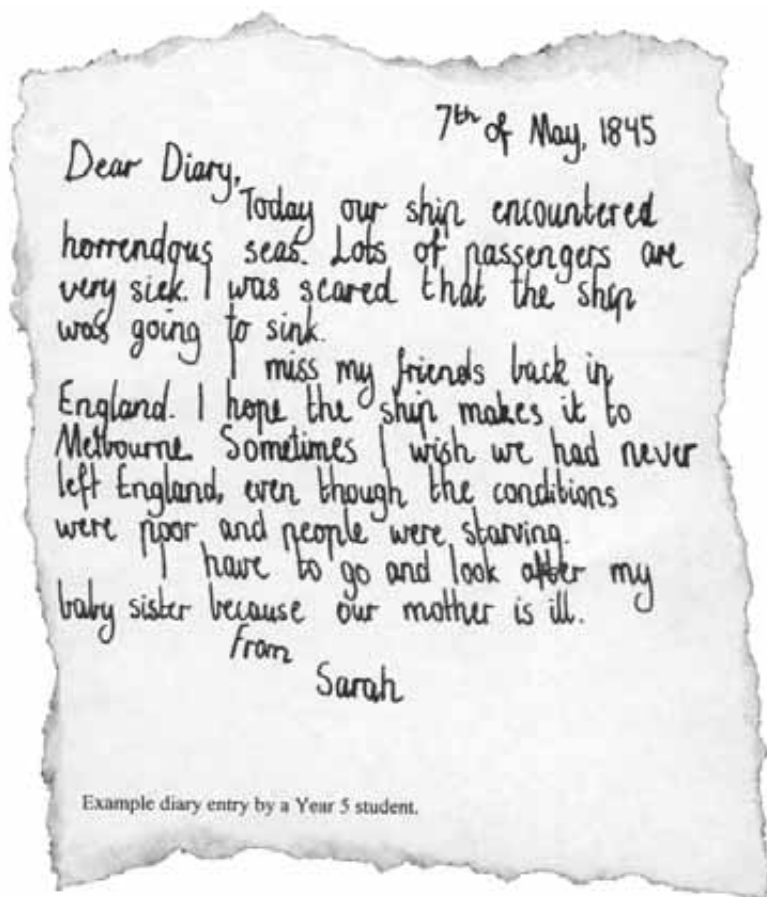 7th of May, 1845
Dear Diary,
Today our ship encountered
horrendous seas. Lots of passengers are
very sick. I was scared that the ship
was going to sink.
I miss my friends back in
England. I hope the ship makes it to
Melbourne. Sometimes I wish we had never
left England, even though the conditions
were poor and people were starving.
I have to go and look after my
baby sister because our mother is ill.
From
Sarah
Example diary entry by a Year 5 student.